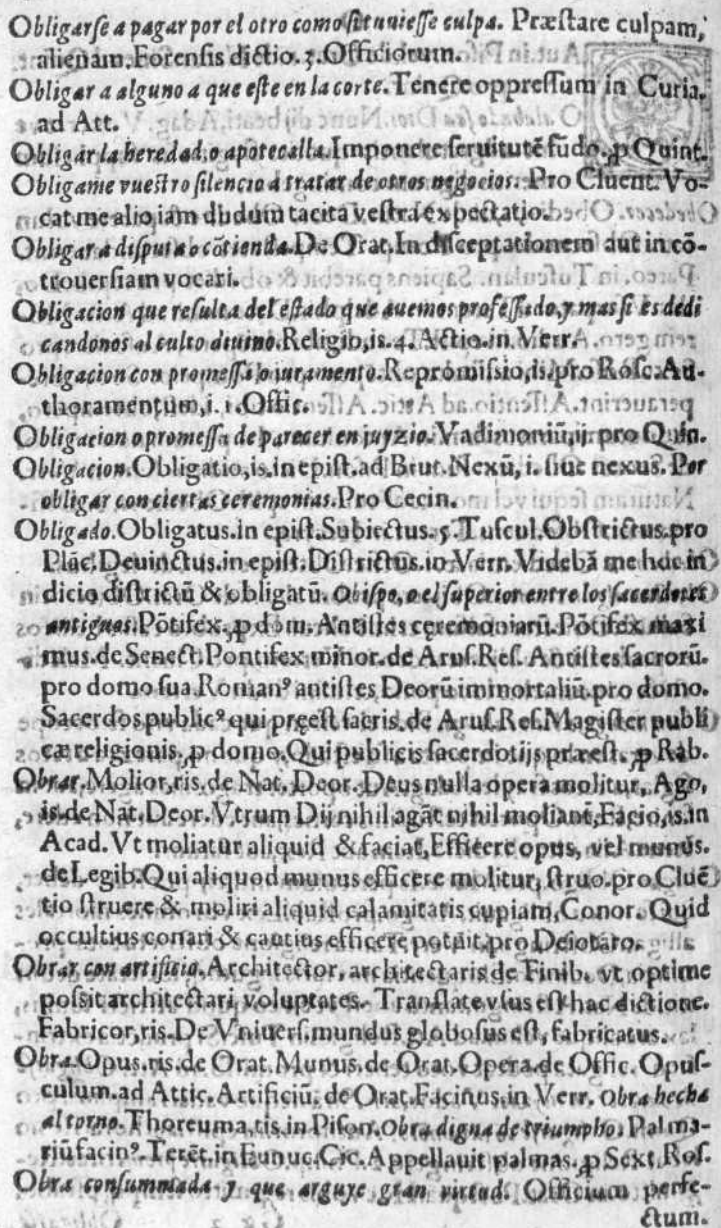 Obligarſe a pagar por el otro como ſi tuuieſſe culpa. Præſtare culpam,
alienam. Forenſis dictio. 3. Officiorum.
Obligar a alguno a que eſte en la corte. Tenere oppreſſum in Curia.
ad Att.
Obligar la heredad, o apotecalla. Imponere ſeruitutẽ fũdo. ꝓ Quint.
Obligame vueſtro ſilencio a tratar de otros negocios. Pro Cluent. Vo-
cat me alio iam dudum tacita veſtra expectatio.
Obligar a diſputa o cõtienda. De Orat. In diſceptationem aut in cõ-
trouerſiam vocari.
Obligacion que reſulta del eſtado que auemos profeſſado, y mas ſi es dedi
candonos al culto diuino. Religio, is. 4. Actio. in Verr.
Obligacion con promeſſa o iuramento. Repromiſsio, is. pro Roſc. Au-
thoramentum, i. 1. Offic.
Obligacion o promeſſa de parecer en juyzio. Vadimoniũ, ij. pro Quin.
Obligacion. Obligatio, is. in epiſt. ad Brut. Nexũ, i. ſiue nexus. Por
obligar con ciertas ceremonias. Pro Cecin.
Obligado. Obligatus. in epiſt. Subiectus. 5. Tuſcul. Obſtrictus. pro
Plãc. Deuinctus. in epiſt. Diſtrictus. in Verr. Videbã me hoc in
dicio diſtrictũ & obligatũ. Obiſpo, o el ſuperior entre los ſacerdotes
antiguos. Põtifex. ꝓ dom. Antiſtes cęremoniarũ. Põtifex maxi
mus. de Senect. Pontifex minor. de Aruſ. Reſ. Antiſtes ſacrorũ.
pro domo ſua. Romanꝰ antiſtes Deorũ immortaliũ. pro domo.
Sacerdos publicꝰ qui pręeſt ſacris. de Aruſ. Reſ. Magiſter publi
cæ religionis. ꝓ domo. Qui publicis ſacerdotijs præeſt. ꝓ Rab.
Obrar. Molior, ris. de Nat. Deor. Deus nulla opera molitur, Ago,
is. de Nat. Deor. Vtrum Dij nihil agãt nihil moliant, Facio, is. in
Acad. Vt moliatur aliquid & faciat, Efficere opus, vel munus.
de Legib. Qui aliquod munus efficere molitur, ſtruo. pro Cluẽ
tio ſtruere & moliri aliquid calamitatis cupiam, Conor. Quid
occultius conari & cautius efficere potuit. pro Deiotaro.
Obrar con artificio. Architector, architectaris de Finib. vt optime
poſsit architectari voluptates. Tranſlate vſus eſt hac dictione.
Fabricor, ris. De Vniuerſ. mundus globoſus eſt, fabricatus.
Obra. Opus. ris. de Orat. Munus. de Orat. Opera. de Offic. Opuſ-
culum. ad Attic. Artificiũ. de Orat. Facinus. in Verr. Obra hecha
al torno. Thoreuma, tis. in Piſon. Obra digna de triumpho. Palma-
riũ facinꝰ. Terẽt. in Eunuc. Cic. Appellauit palmas. ꝓ Sext. Roſ.
Obra conſummada y que arguye gran virtud. Officium perfe-
ctum.